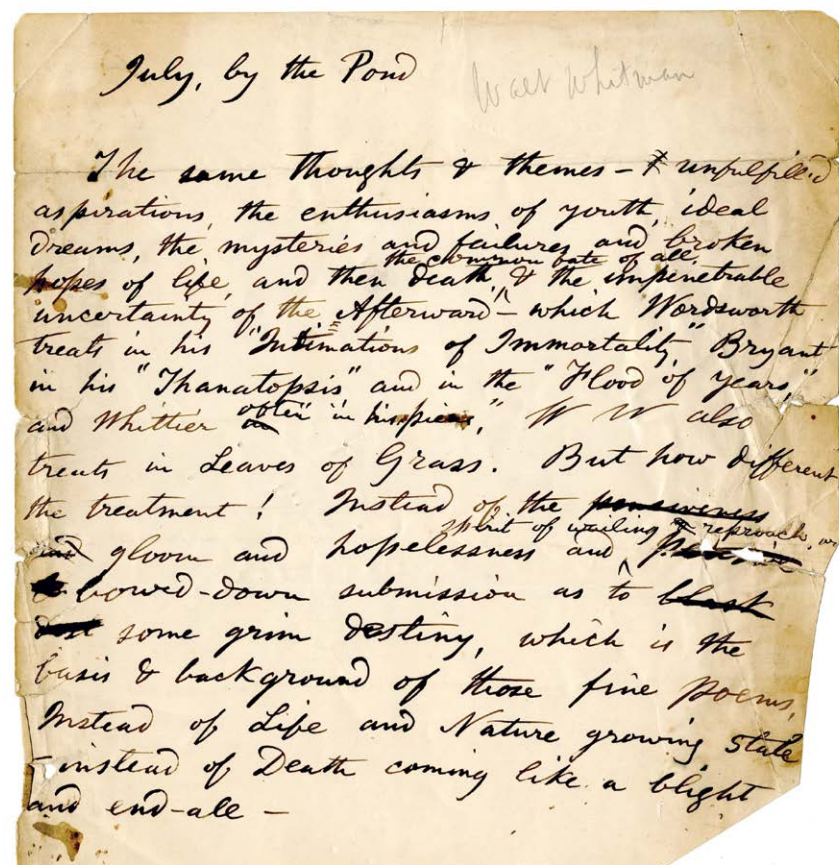 July, by the Pond
Walt Whitman
The same thoughts & themes — unfulfill'd
aspirations, the enthusiasms of youth, ideal
dreams, the mysteries and failures and broken
the common fate of all,
hopes of life, and then death, & the impenetrable
uncertainty of the Afterward — which Wordsworth
treats in his "Intimations of Immortality," Bryant
in his "Thanatopsis" and in the "Flood of Years,"
and Whittier often in his pieces," W W also
treats in Leaves of Grass. But how different
the treatment! Instead of the pensiveness
spirit of wailing & reproach, or
and gloom and hopelessness and
bowed-down submission as to blast
some grim destiny, which is the
basis & background of those fine poems,
Instead of Life and Nature growing stale
— instead of Death coming like a blight
and end-all —